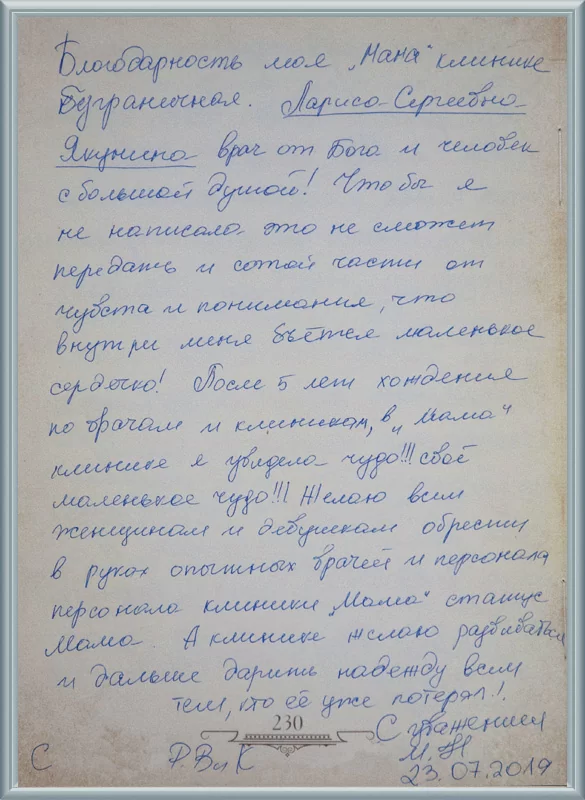 Благодарность моя „Мама“ клинике
Безграничная. Лариса Сергеевна
Якунина врач от Бога и человек
с большой душой! Что бы я
не написала это не сможет
передать и сотой части от
чувста и понимания, что
внутри меня бьётся маленькое
сердечко! После 5 лет хождения
по врачам и клиникам, в „Мама“
клинике я увидела чудо!!! своё
маленькое чудо!!! Желаю всем
женщинам и девушкам обрести
в руках опытных врачей и персонала
персонала клиники „Мама“ статус
Мама А клинике желаю развиваться
и дальше дарить надежду всем
тем, кто её уже потерял.!
230
С уважением
М. Н
С Р. В и К
23.07.2019